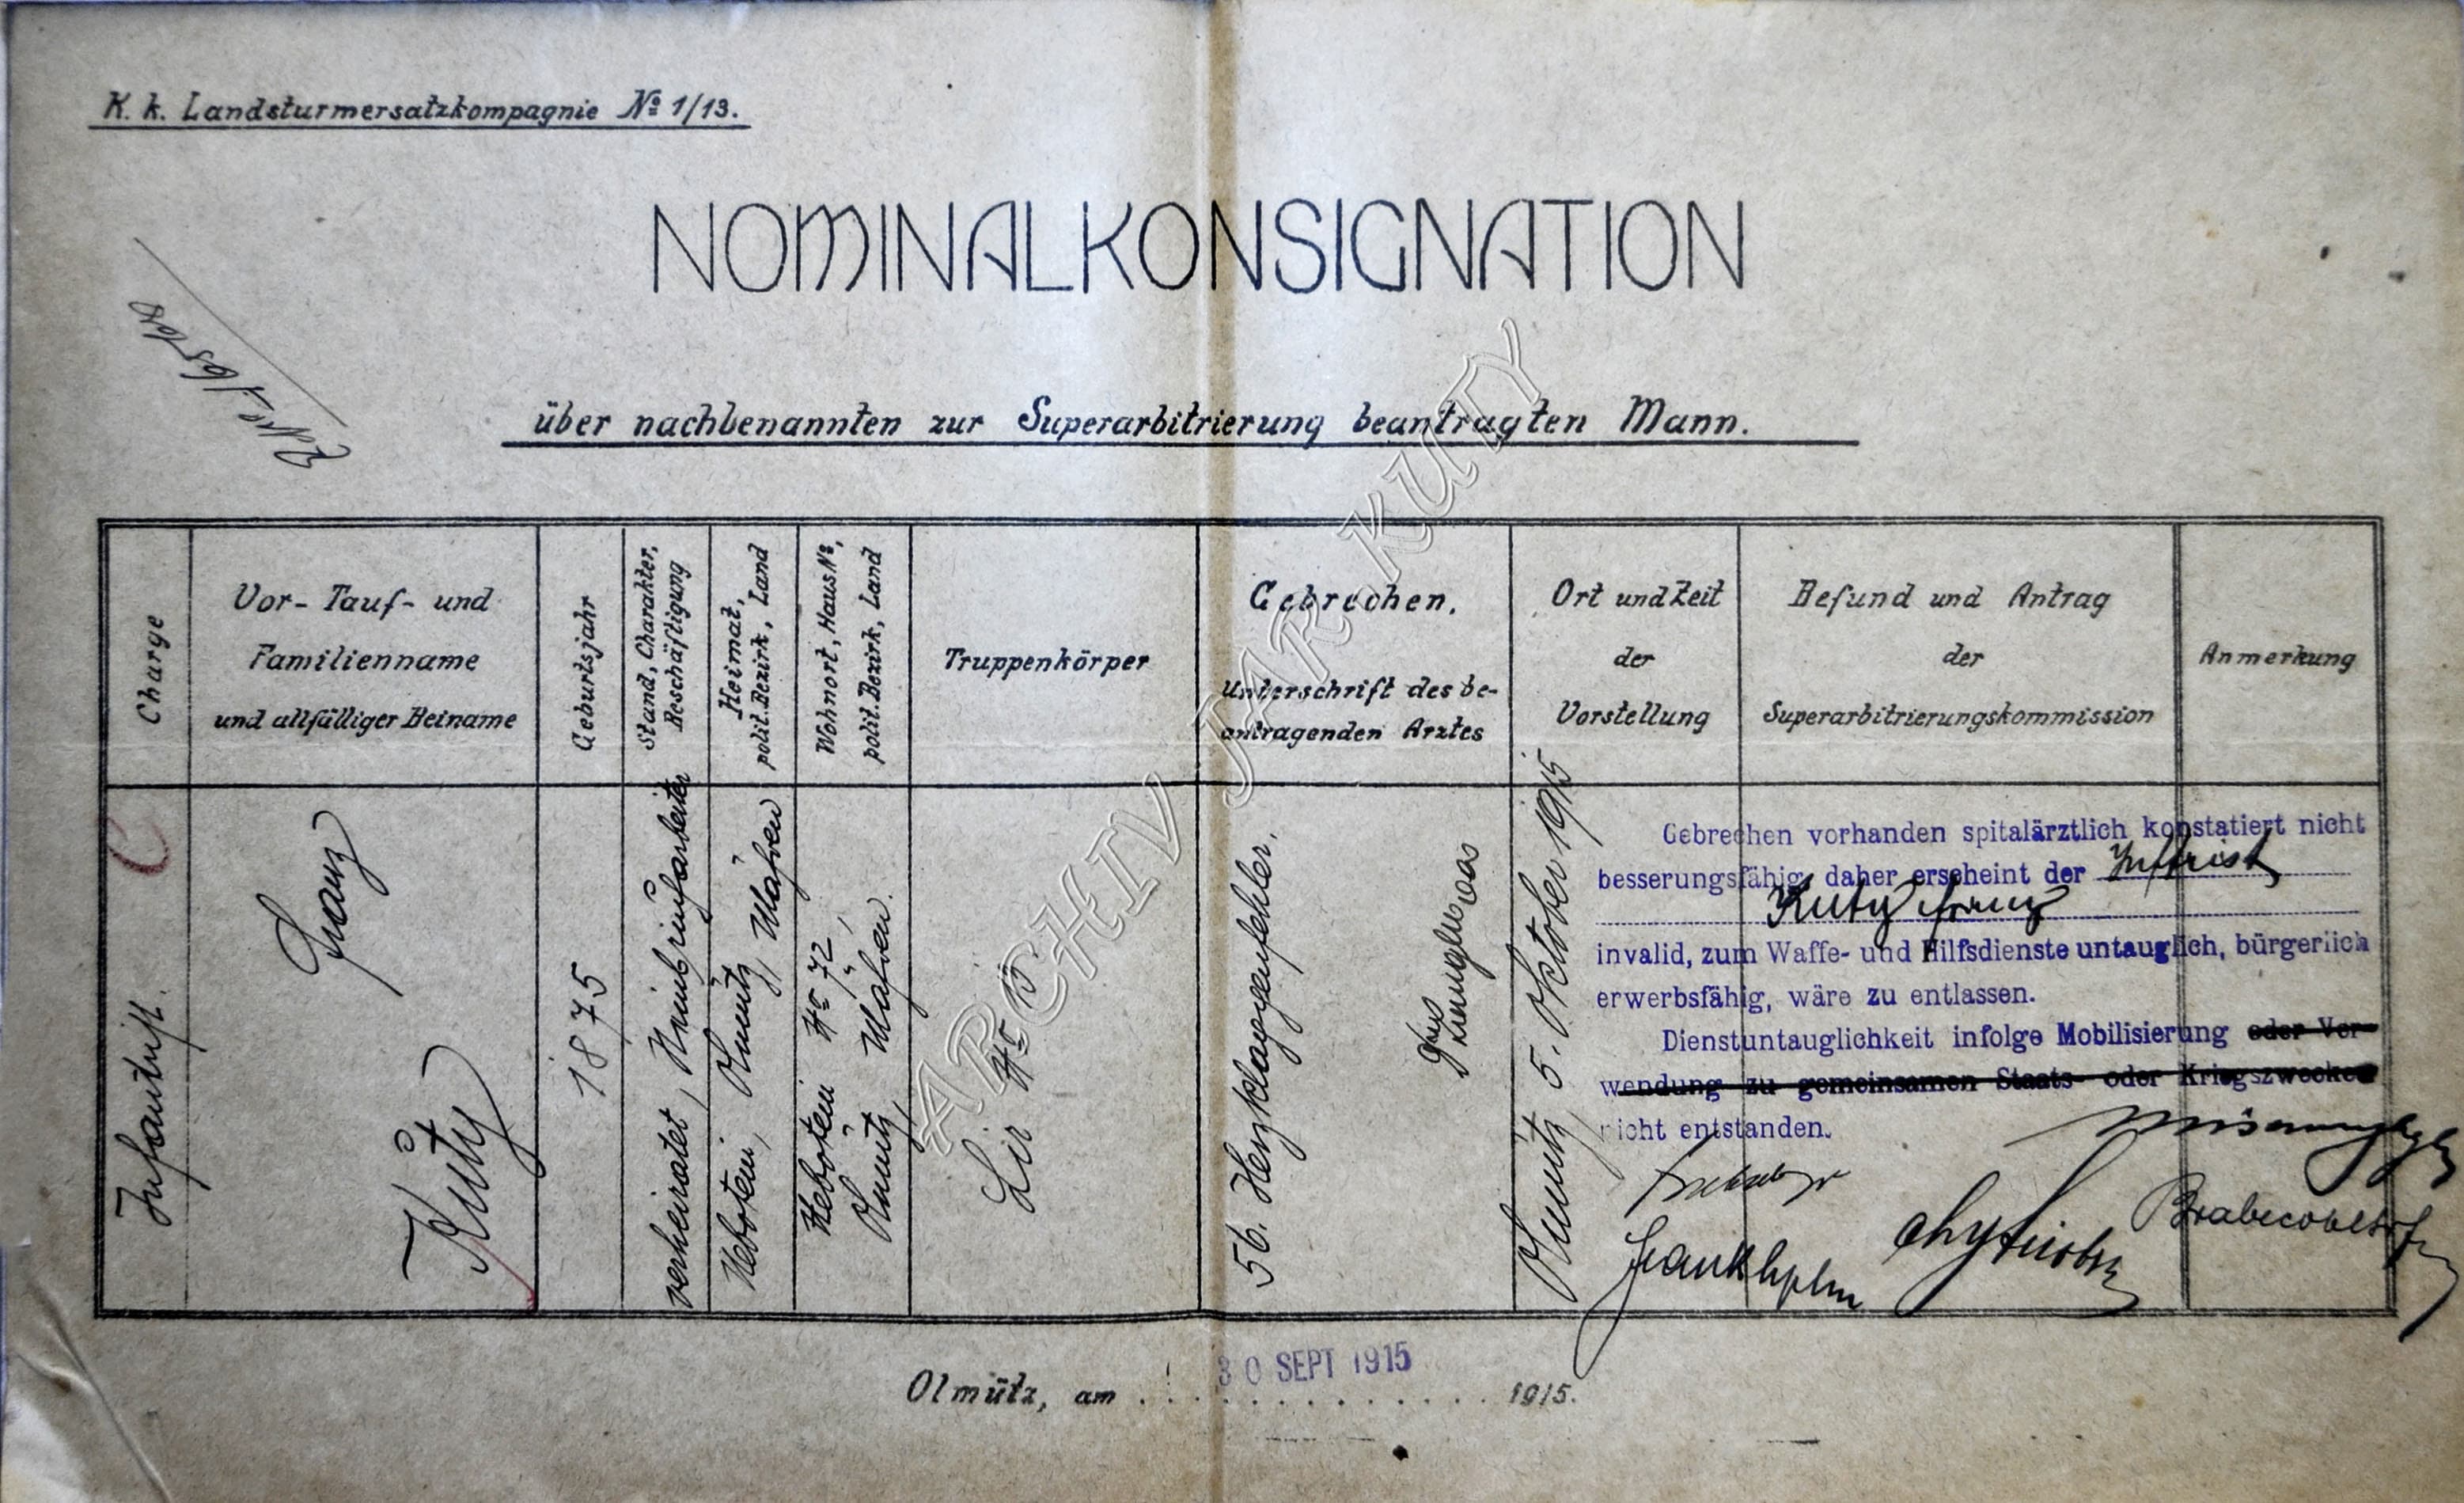 K. k. Landsturmersatzkompagnie № 1/13.
NOMINALKONSIGNATION
über nachbenannten zur Superarbitrierung beantragten Mann.
Charge
Vor- Tauf- und
Familienname
und allfälliger Beiname
Geburtsjahr
Stand, Charakter,
Beschäftigung
Heimat,
polit. Bezirk, Land
Wohnort, Haus №,
polit. Bezirk, Land
Truppenkörper
Gebrechen.
Unterschrift des be-
antragenden Arztes
Ort und Zeit
der
Vorstellung
Befund und Antrag
der
Superarbitrierungskommission
Anmerkung
C
Infanterist.
Franz
Kuty
1875
verheiratet,
Nebotein, Olmütz, Mähren
Nebotein № 72,
Olmütz, Mähren.
Lir № 13
56. Herzklappenfehler.
Olmütz, 5. Oktober 1915
Gebrechen vorhanden spitalärztlich konstatiert nicht
besserungsfähig, daher erscheint der Inftrist
Kuty Franz
invalid, zum Waffe- und Hilfsdienste untauglich, bürgerlich
erwerbsfähig, wäre zu entlassen.
Dienstuntauglichkeit infolge Mobilisierung oder Ver-
wendung zu gemeinsamen Staats- oder Kriegszwecken
nicht entstanden.
Olmütz, am 30 SEPT 1915 1915.
ARCHIV JAR. KUTY